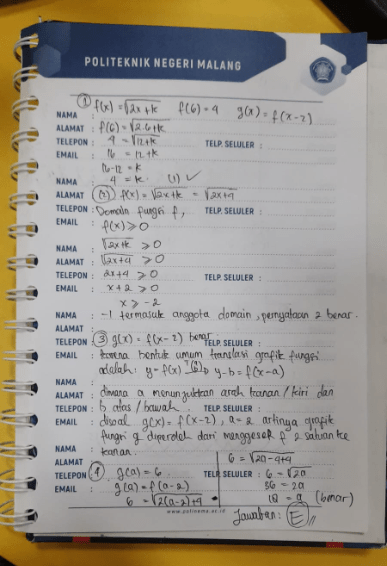 POLITEKNIK NEGERI MALANG
① f(x) = √2x+k f(6) = 4 g(x) = f(x-2)
NAMA :
ALAMAT : f(6) = √2.6+k
TELEPON : 4 = √12+k TELP. SELULER :
EMAIL : 16 = 12+k
16-12 = k
NAMA : 4 = k. (1) ✓
ALAMAT : (2) f(x) = √2x+k = √2x+4
TELEPON : Domain fungsi f, TELP. SELULER :
EMAIL : f(x) ≥ 0
NAMA : √2x+k ≥ 0
ALAMAT : √2x+4 ≥ 0
TELEPON : 2x+4 ≥ 0 TELP. SELULER :
EMAIL : x+2 ≥ 0
x ≥ -2
NAMA : -1 termasuk anggota domain, pernyataan 2 benar.
ALAMAT :
TELEPON : ③ g(x) = f(x-2) benar TELP. SELULER :
EMAIL : karena bentuk umum translasi grafik fungsi
adalah: y = f(x) y-b = f(x-a)
NAMA :
ALAMAT : dimana a menunjukkan arah kanan/kiri dan
TELEPON : b atas/bawah. TELP. SELULER :
EMAIL : disoal g(x) = f(x-2), a=2 artinya grafik
fungsi g diperoleh dari menggeser f 2 satuan ke
NAMA : kanan.
ALAMAT : 6 = √2a-4+4
TELEPON : ④ g(a) = 6 TELP. SELULER : 6 = √2a
EMAIL : g(a) = f(a-2) 36 = 2a
6 = √2(a-2)+4 18 = a (benar)
www.polinema.ac.id
Jawaban: Ⓔ //